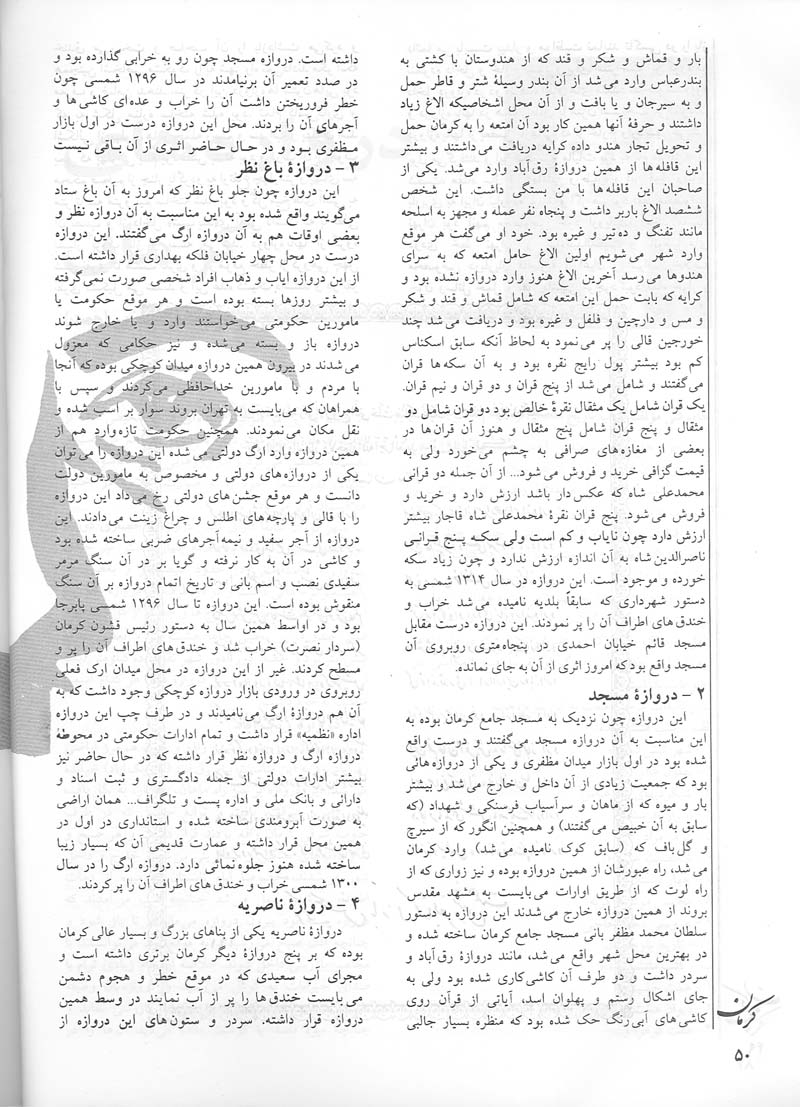 بار و قماش و شکر و قند که از هندوستان با کشتی به
بندرعباس وارد می‌شد از آن بندر وسیلهٔ شتر و قاطر حمل
و به سیرجان و یا بافت و از آن محل اشخاصیکه الاغ زیاد
داشتند و حرفهٔ آنها همین کار بود آن امتعه را به کرمان حمل
و تحویل تجار هندو داده کرایه دریافت می‌داشتند و بیشتر
این قافله‌ها از همین دروازهٔ رق‌آباد وارد می‌شد. یکی از
صاحبان این قافله‌ها با من بستگی داشت. این شخص
ششصد الاغ باربر داشت و پنجاه نفر عمله و مجهز به اسلحه
مانند تفنگ و ده‌تیر و غیره بود. خود او می‌گفت هر موقع
وارد شهر می‌شویم اولین الاغ حامل امتعه که به سرای
هندوها می‌رسد آخرین الاغ هنوز وارد دروازه نشده بود و
کرایه که بابت حمل این امتعه که شامل قماش و قند و شکر
و مس و دارچین و فلفل و غیره بود و دریافت می‌شد چند
خورجین قالی را پر می‌نمود به لحاظ آنکه سابق اسکناس
کم بود بیشتر پول رایج نقره بود و به آن سکه‌ها قران
می‌گفتند و شامل می‌شد از پنج قران و دو قران و نیم قران.
یک قران شامل یک مثقال نقرهٔ خالص بود دو قران شامل دو
مثقال و پنج قران شامل پنج مثقال و هنوز آن قران‌ها در
بعضی از مغازه‌های صرافی به چشم می‌خورد ولی به
قیمت گزافی خرید و فروش می‌شود... از آن جمله دو قرانی
محمدعلی شاه که عکس‌دار باشد ارزش دارد و خرید و
فروش می‌شود. پنج قران نقرهٔ محمدعلی شاه قاجار بیشتر
ارزش دارد چون نایاب و کم است ولی سکه پنج قرانی
ناصرالدین‌شاه به آن اندازه ارزش ندارد و چون زیاد سکه
خورده و موجود است. این دروازه در سال ۱۳۱۴ شمسی به
دستور شهرداری که سابقاً بلدیه نامیده می‌شد خراب و
خندق‌های اطراف آن را پر نمودند. این دروازه درست مقابل
مسجد قائم خیابان احمدی در پنجاه‌متری روبروی آن
مسجد واقع بود که امروز اثری از آن به جای نمانده.
۲ - دروازهٔ مسجد
این دروازه چون نزدیک به مسجد جامع کرمان بوده به
این مناسبت به آن دروازه مسجد می‌گفتند و درست واقع
شده بود در اول بازار میدان مظفری و یکی از دروازه‌هائی
بود که جمعیت زیادی از آن داخل و خارج می‌شد و بیشتر
بار و میوه که از ماهان و سرآسیاب فرسنگی و شهداد (که
سابق به آن خبیص می‌گفتند) و همچنین انگور که از سیرچ
و گل‌باف که (سابق کوک نامیده می‌شد) وارد کرمان
می‌شد، راه عبورشان از همین دروازه بوده و نیز زواری که از
راه لوت که از طریق اوارات می‌بایست به مشهد مقدس
بروند از همین دروازه خارج می‌شدند این دروازه به دستور
سلطان محمد مظفر بانی مسجد جامع کرمان ساخته شده و
در بهترین محل شهر واقع می‌شد، مانند دروازهٔ رق‌آباد و
سردر داشت و دو طرف آن کاشی‌کاری شده بود ولی به
جای اشکال رستم و پهلوان اسد، آیاتی از قرآن روی
کاشی‌های آبی‌رنگ حک شده بود که منظره بسیار جالبی
داشته است. دروازه مسجد چون رو به خرابی گذارده بود و
در صدد تعمیر آن برنیامدند در سال ۱۲۹۶ شمسی چون
خطر فروریختن داشت آن را خراب و عده‌ای کاشی‌ها و
آجرهای آن را بردند. محل این دروازه درست در اول بازار
مظفری بود و در حال حاضر اثری از آن باقی نیست
۳ - دروازهٔ باغ نظر
این دروازه چون جلو باغ نظر که امروز به آن باغ ستاد
می‌گویند واقع شده بود به این مناسبت به آن دروازه نظر و
بعضی اوقات هم به آن دروازه ارگ می‌گفتند. این دروازه
درست در محل چهار خیابان فلکه بهداری قرار داشته است.
از این دروازه ایاب و ذهاب افراد شخصی صورت نمی‌گرفته
و بیشتر روزها بسته بوده است و هر موقع حکومت یا
مامورین حکومتی می‌خواستند وارد و یا خارج شوند
دروازه باز و بسته می‌شده و نیز حکامی که معزول
می‌شدند در بیرون همین دروازه میدان کوچکی بوده که آنجا
با مردم و با مامورین خداحافظی می‌کردند و سپس با
همراهان که می‌بایست به تهران بروند سوار بر اسب شده و
نقل مکان می‌نمودند. همچنین حکومت تازه‌وارد هم از
همین دروازه وارد ارگ دولتی می‌شده این دروازه را می‌توان
یکی از دروازه‌های دولتی و مخصوص به مامورین دولت
دانست و هر موقع جشن‌های دولتی رخ می‌داد این دروازه
را با قالی و پارچه‌های اطلس و چراغ زینت می‌دادند. این
دروازه از آجر سفید و نیمه‌آجرهای ضربی ساخته شده بود
و کاشی در آن به کار نرفته و گویا بر در آن سنگ مرمر
سفیدی نصب و اسم بانی و تاریخ اتمام دروازه بر آن سنگ
منقوش بوده است. این دروازه تا سال ۱۲۹۶ شمسی پابرجا
بود و در اواسط همین سال به دستور رئیس قشون کرمان
(سردار نصرت) خراب شد و خندق‌های اطراف آن را پر و
مسطح کردند. غیر از این دروازه در محل میدان ارک فعلی
روبروی در ورودی بازار دروازه کوچکی وجود داشت که به
آن هم دروازهٔ ارگ می‌نامیدند و در طرف چپ این دروازه
اداره «نظمیه» قرار داشت و تمام ادارات حکومتی در محوطهٔ
دروازه ارگ و دروازه نظر قرار داشته که در حال حاضر نیز
بیشتر ادارات دولتی از جمله دادگستری و ثبت اسناد و
دارائی و بانک ملی و اداره پست و تلگراف... همان اراضی
به صورت آبرومندی ساخته شده و استانداری در اول در
همین محل قرار داشته و عمارت قدیمی آن که بسیار زیبا
ساخته شده هنوز جلوه‌نمائی دارد. دروازه ارگ را در سال
۱۳۰۰ شمسی خراب و خندق‌های اطراف آن را پر کردند.
۴ - دروازهٔ ناصریه
دروازهٔ ناصریه یکی از بناهای بزرگ و بسیار عالی کرمان
بوده که بر پنج دروازهٔ دیگر کرمان برتری داشته است و
مجرای آب سعیدی که در موقع خطر و هجوم دشمن
می‌بایست خندق‌ها را پر از آب نمایند در وسط همین
دروازه قرار داشته. سردر و ستون‌های این دروازه از
کرمان
۵۰